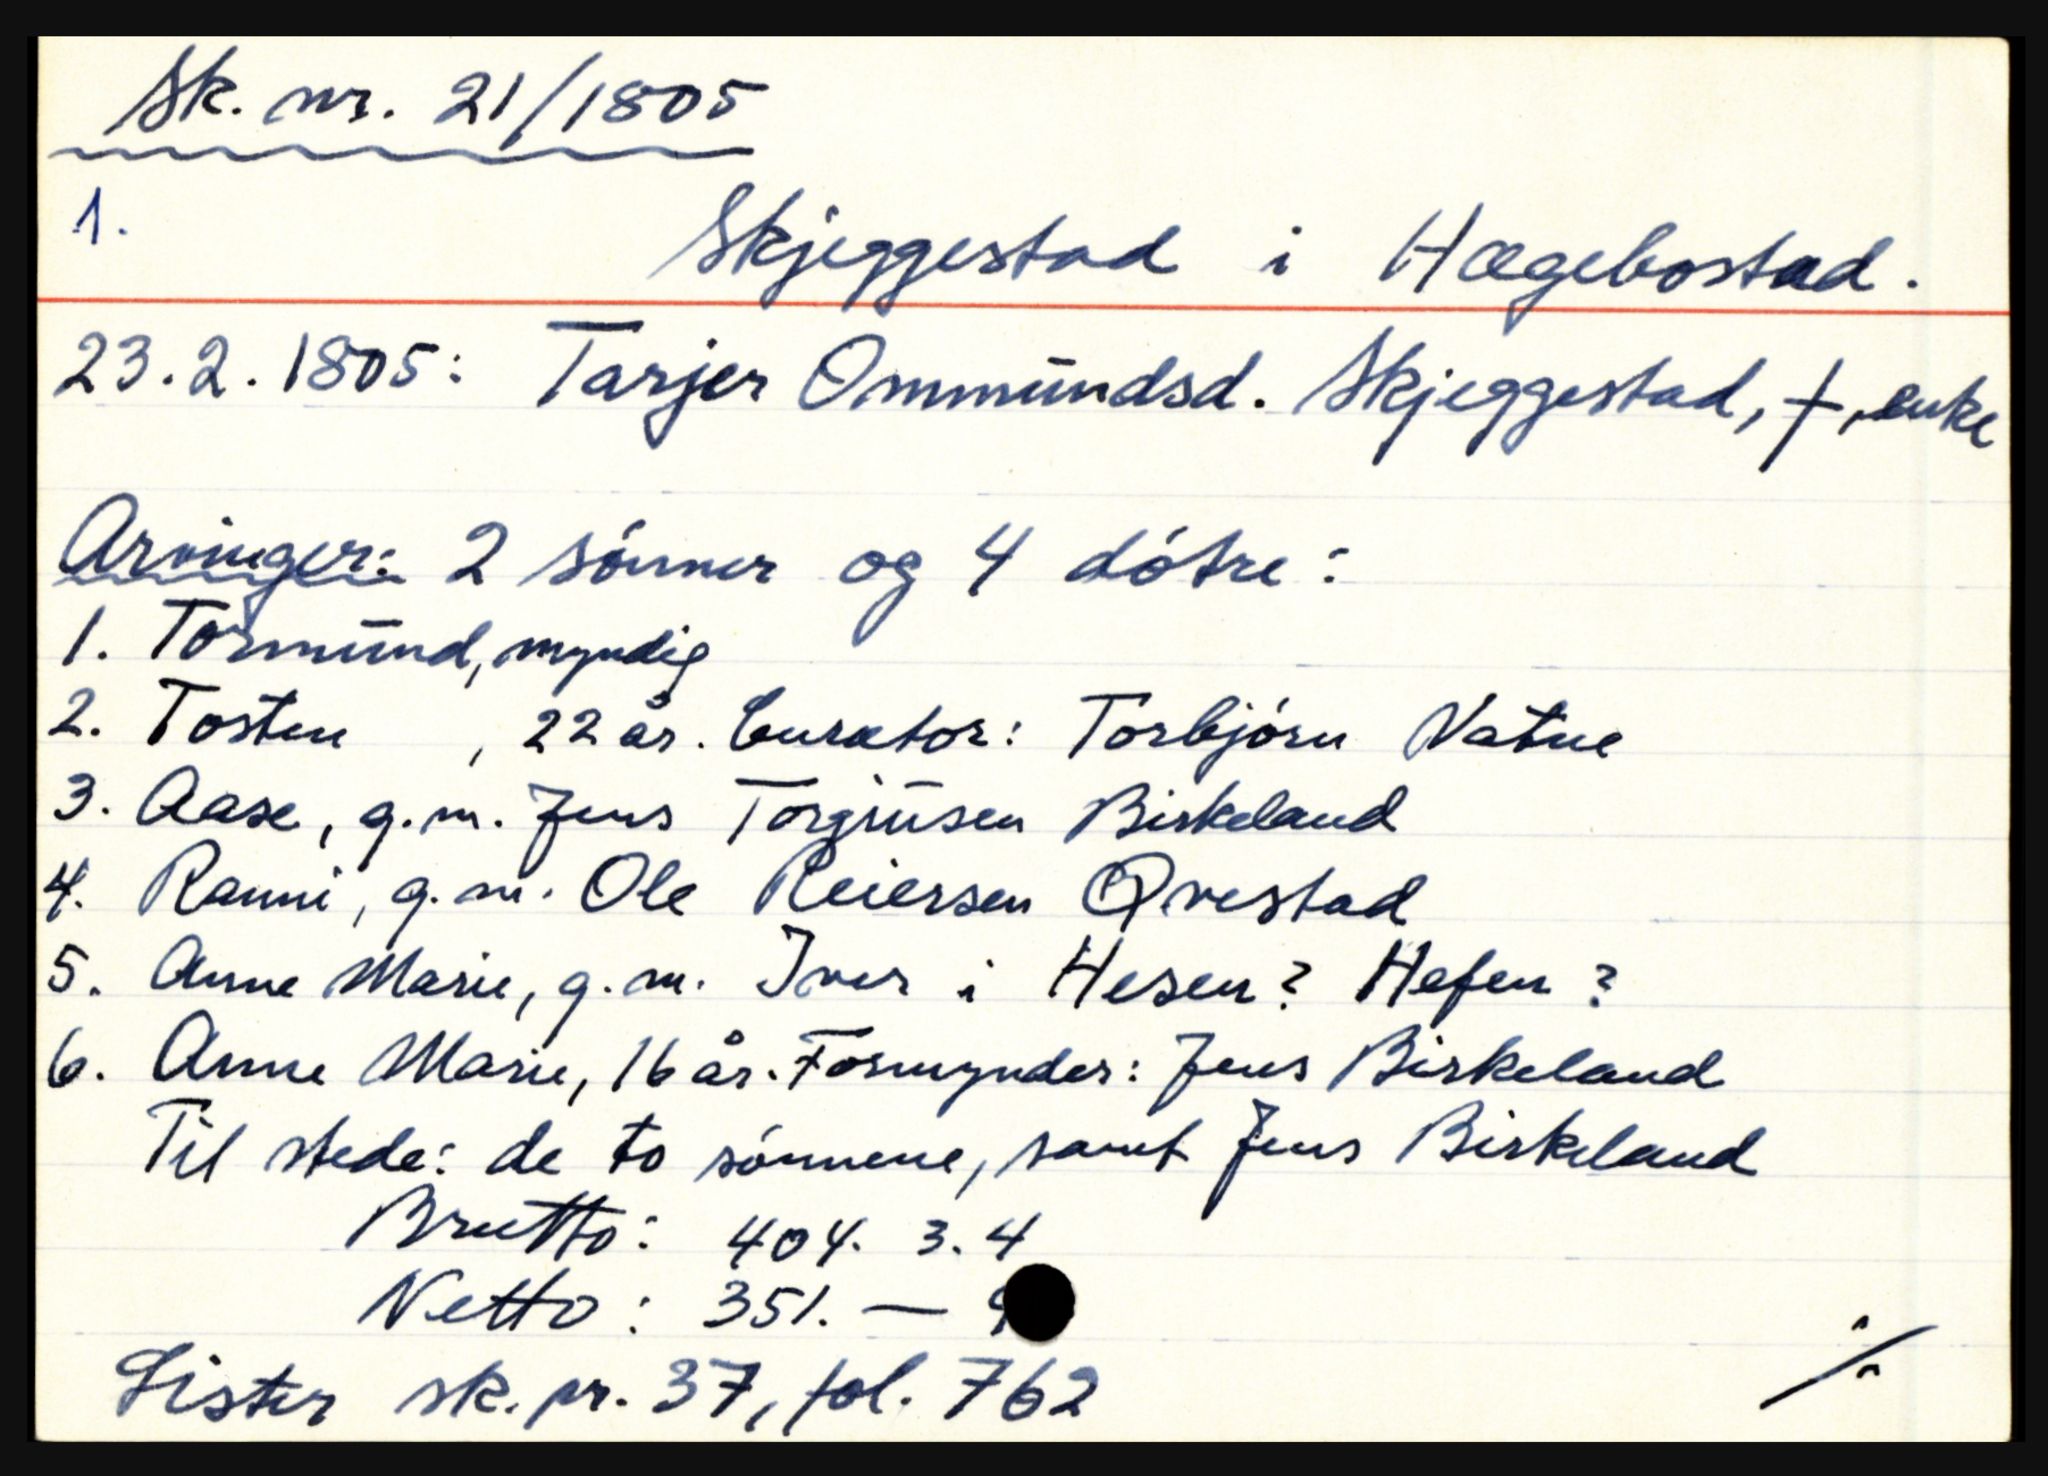 Sk. nr. 21/1805
1.
Skjeggestad i Hægebostad.
23.2.1805: Tarjer Ommundsd. Skjeggestad, †, enke
Arvinger: 2 sønner og 4 døtre:
1. Tormund, myndig
2. Tosten , 22 år. Curator: Torbjørn Vatne
3. Aase, g.m. Jens Torgiusen Birkeland
4. Ranni, g.m. Ole Reiersen Qvestad
5. Anne Marie, g.m. Iver i Hesen? Hefen?
6. Anne Marie, 16 år. Formynder: Jens Birkeland
Til stede: de to sønnene, samt Jens Birkeland
Brutto: 404. 3. 4
Netto: 351. —
Lister sk. pr. 37, fol. 762